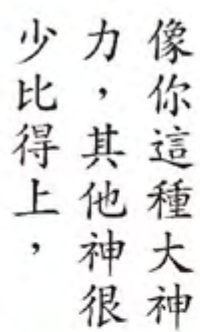 像你這種大神
力，其他神很
少比得上，